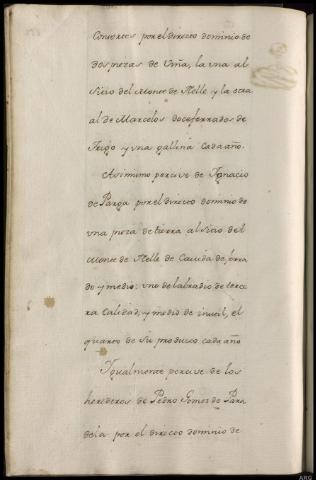 Consortes por el directo dominio de
dos piezas de Viña, la una al
Sitio del Monte de Melle y la otra
al de Marcelos doce ferrados de
Trigo y una gallina cada año.
Asimismo percive de Ygnacio
de Parga por el directo dominio de
una pieza de tierra al Sitio del
Monte de Melle de Cavida de ferra
do y medio: uno de labradio de terce
ra Calidad, y medio de inutil, el
quarto de su producto cada año
Ygualmente percive de los
herederos de Pedro Gomez de Para
dela por el directo dominio de
ARG